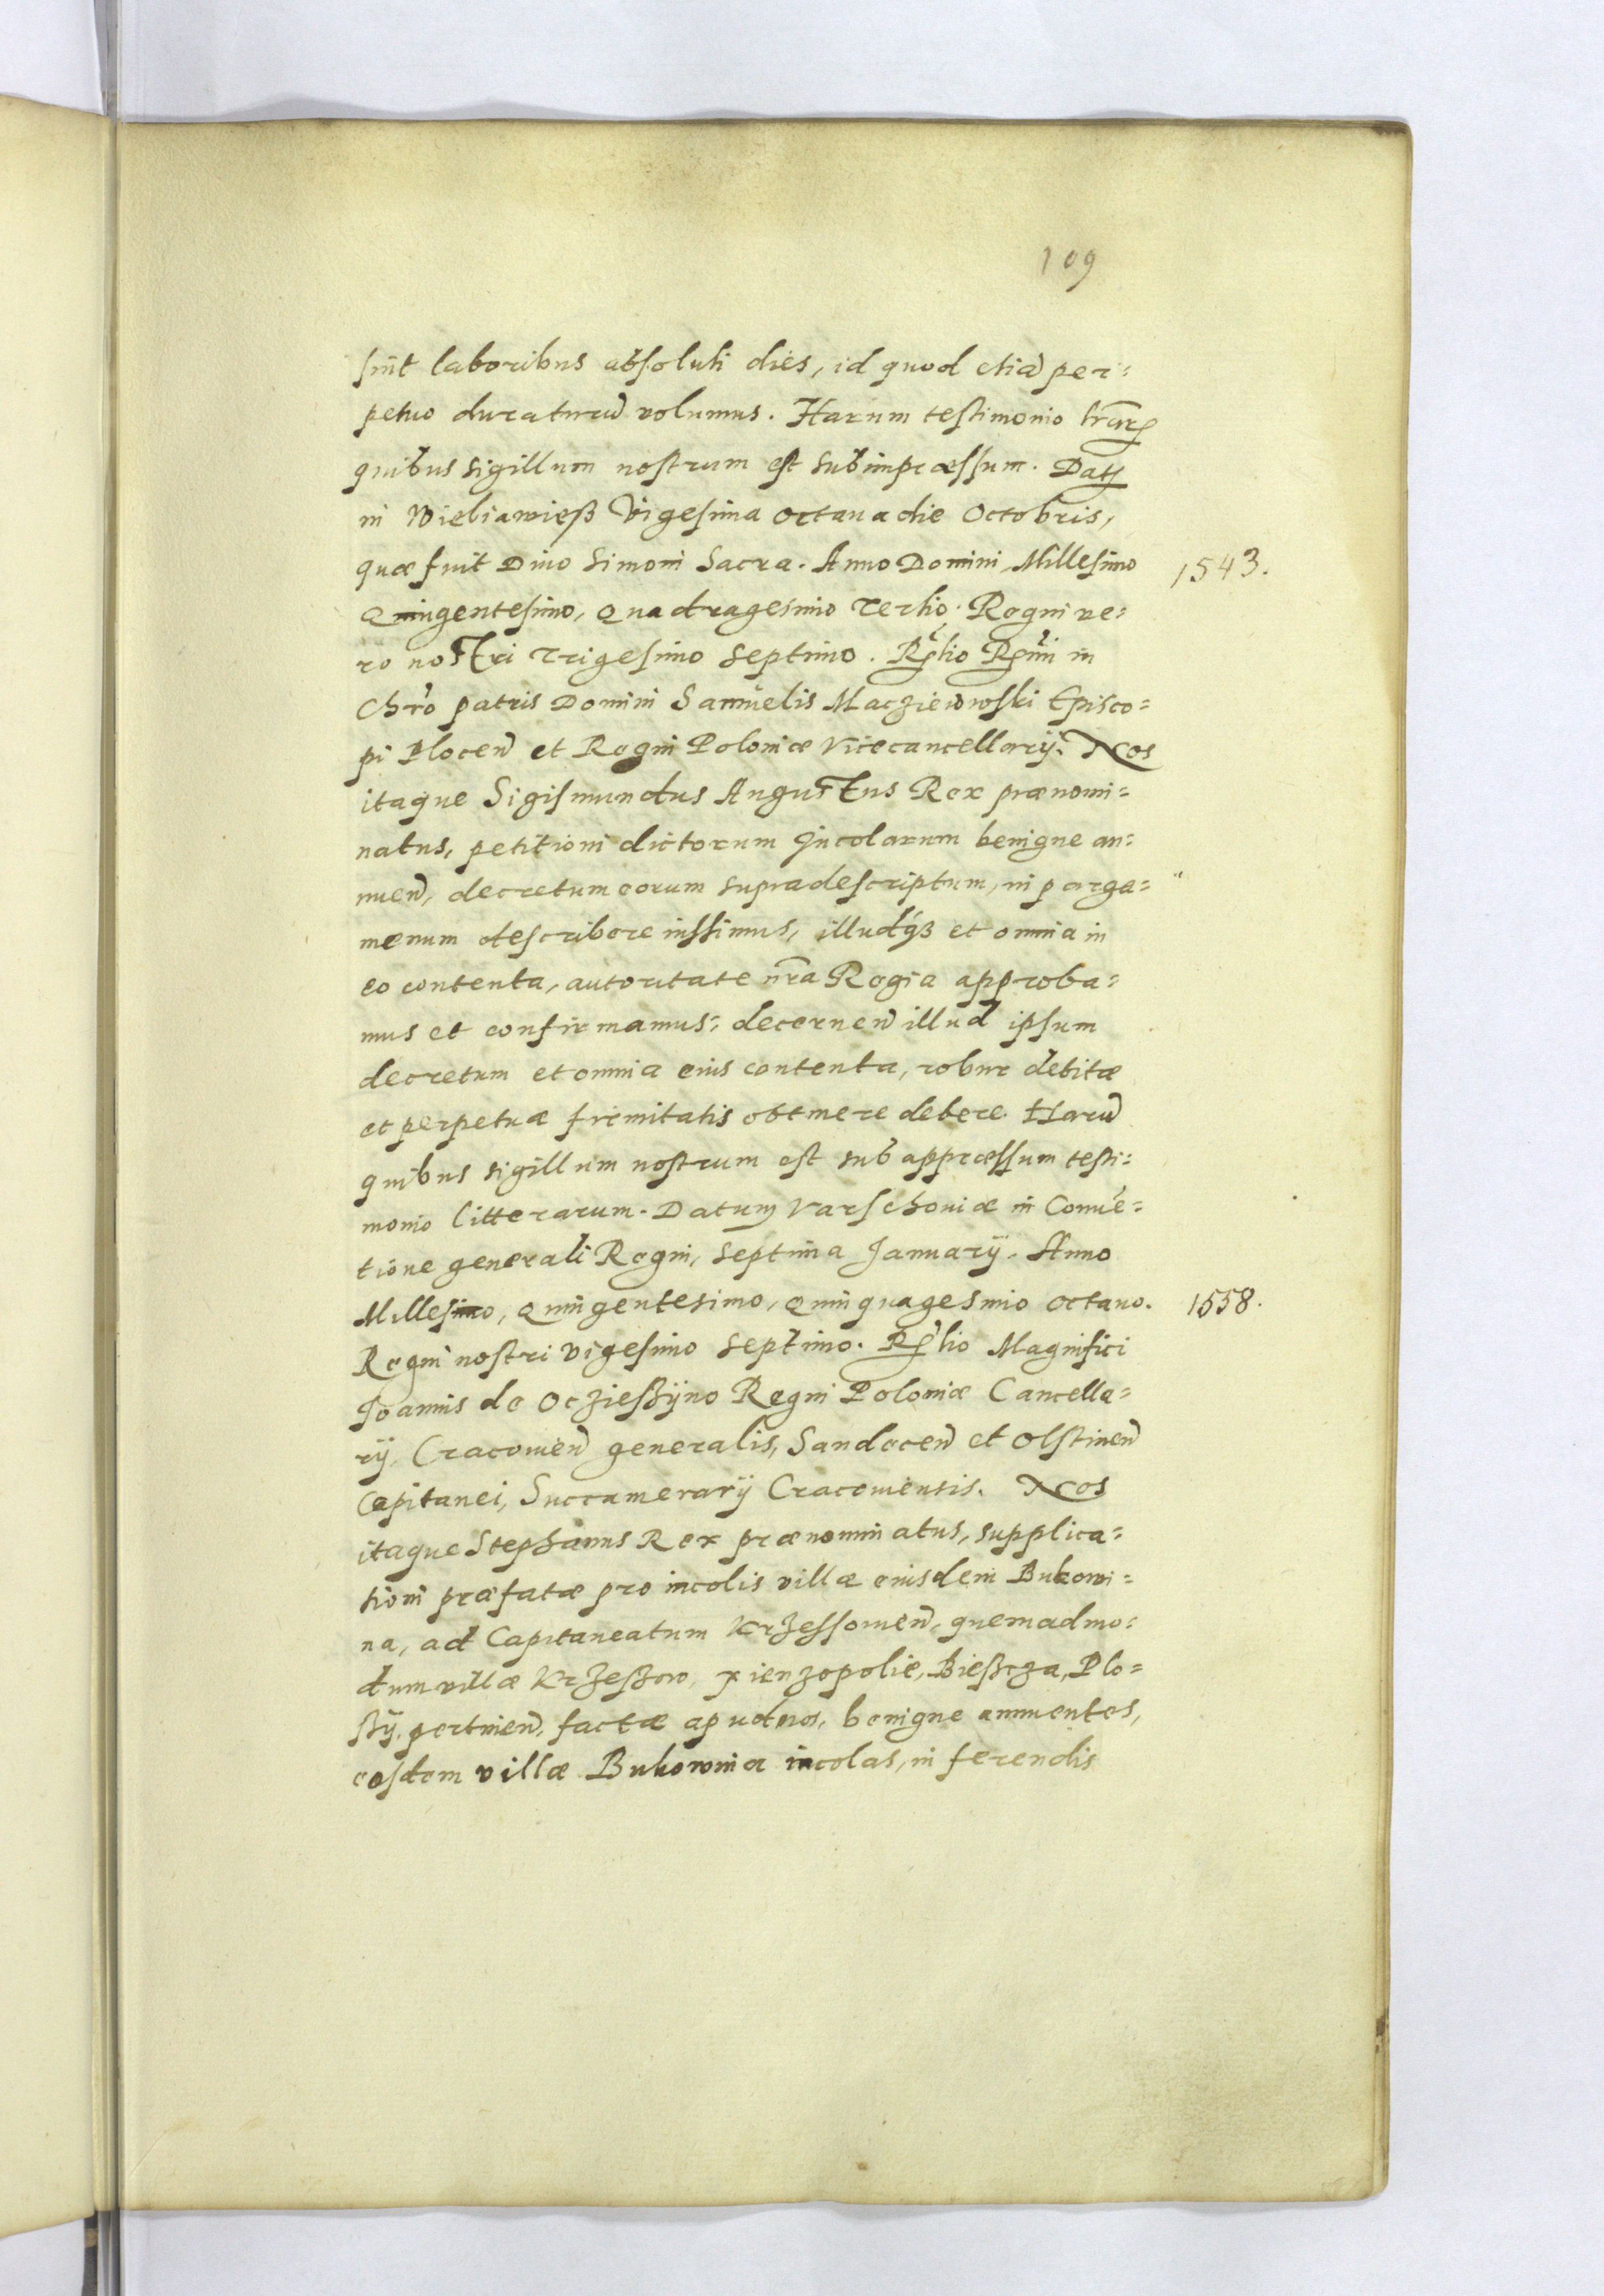 109
sint laboribus absoluti dies, id quod etiã per=
petuo duraturũ volumus. Harum testimonio lr̃arꝝ
quibus sigillum nostrum est subimpræssum. Datꝭ
in Wieliawieß Vigesima octaua die Octobris,
quæ fuit Diuo Simoni Sacra. Anno Domini Millesimo 1543.
Quingentesimo, Quadragesimo Tertio. Regni ve=
ro nostri Trigesimo Septimo. Rel̃tio Rñdi in
Chrõ patris Domini Samuelis Macziewowski Episco=
pi Plocen̄ et Regni Poloniæ Vicecancellarij. Nos
itaque Sigismundus Augustus Rex prænomi=
natus, petitioni dictorum Incolarum benigne an=
nuen̄, decretum eorum supradescriptum, in perga=
menum describere iussimus, illudqꝫ et omnia in
eo contenta, autoritate nr̃a Regia approba=
mus et confirmamus: decernen̄ illud ipsum
decretum et omnia eius contenta, robur debitæ
et perpetuæ firmitatis obtinere debere. Harũ
quibus sigillum nostrum est sub appræssum testi=
monio litterarum. Datum Varschouiæ in Conuẽ=
tione generali Regni, Septima January. Anno
Millesimo, Quingentesimo, Quinquagesimo octauo. 1558.
Regni nostri vigesimo septimo. Rel̃tio Magnifici
Joannis de Oczießijno Regni Poloniæ Cancella=
rij, Cracouien̄ generalis, Sandecen̄ et Olstinen̄
Capitanei, Succamerarij Cracouiensis. Nos
itaque Stephanus Rex prænominatus, supplica=
tioni præfatæ pro incolis villæ eiusdem Bukowi=
na, ad Capitaneatum Krzessouien̄, quemadmo=
dum villæ Krzeßow, Xienzopolie, Bießcza, Plo=
ßij, pertinen̄, factæ apud nos, benigne annuentes,
eosdem villæ Bukowina incolas, in ferendis